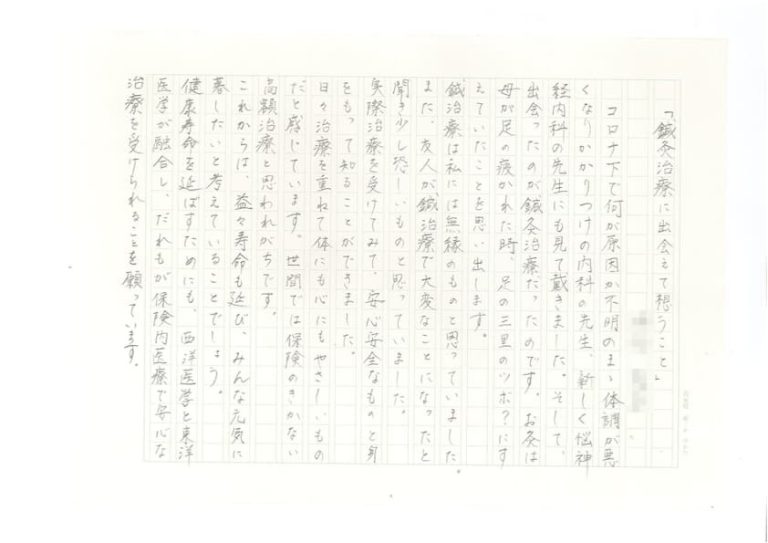 「鍼灸治療に出会えて想うこと」
コロナ下で何が原因か不明のまゝ体調が悪
くなりかかりつけの内科の先生、新しく脳神
経内科の先生にも見て戴きました。そして、
出会ったのが鍼灸治療だったのです。お灸は
母が足の疲かれた時、足の三里のツボ？にす
えていたことを思い出します。
鍼治療は私には無縁のものと思っていました。
また、友人が鍼治療で大変なことになったと
聞き少し恐しいものと思っていました。
実際治療を受けてみて、安心安全なものと身
をもって知ることができました。
日々治療を重ねて体にも心にもやさしいもの
だと感じています。世間では保険のきかない
高額治療と思われがちです。
これからは、益々寿命も延び、みんな元気に
暮したいと考えていることでしょう。
健康寿命を延ばすためにも、西洋医学と東洋
医学が融合し、だれもが保険内医療で安心な
治療を受けられることを願っています。